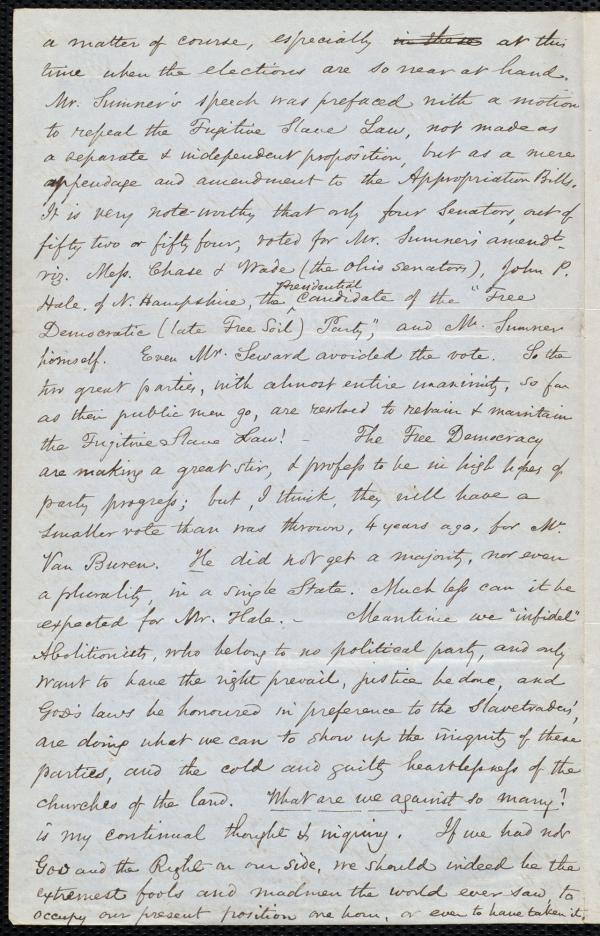 a matter of course, especially in these at this
time when the elections are so near at hand.
Mr. Sumner's speech was prefaced with a motion
to repeal the Fugitive Slave Law, not made as
a separate & independent proposition, but as a mere
appendage and amendment to the Appropriation Bills.
It is very note-worthy that only four Senators, out of
fifty two or fifty four, voted for Mr. Sumner's amendt-
viz. Mess. Chase & Wade (the Ohio Senators), John P.
Hale, of N. Hampshire, the presidential candidate of the "Free
Democratic (late Free Soil) Party", and Mr. Sumner
himself. Even Mr. Seward avoided the vote. So the
two great parties, with almost entire unanimity, so far
as their public men go, are resolved to retain & maintain
the Fugitive Slave Law! - The Free Democracy
are making a great stir, & profess to be in high hopes of
party progress; but, I think, they will have a
smaller vote than was thrown, 4 years ago, for Mr.
Van Buren. He did not get a majority, nor even
a plurality, in a single State. Much less can it be
expected for Mr. Hale. - Meantime we "infidel"
Abolitionists, who belong to no political party, and only
want to have the right prevail, justice be done, and
God's laws be honoured in preference to the Slavetraders',
are doing what we can to show up the iniquity of these
parties, and the cold and guilty heartlessness of the
churches of the land. What are we against so many?
is my continual thought & inquiry. If we had not
God and the Right on our side, we should indeed be the
extremest fools and madmen the world ever saw, to
occupy our present position one hour, or even to have taken it.